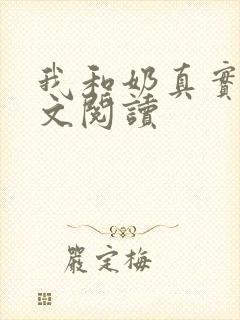 我和奶真實
文閱讀
嚴定梅